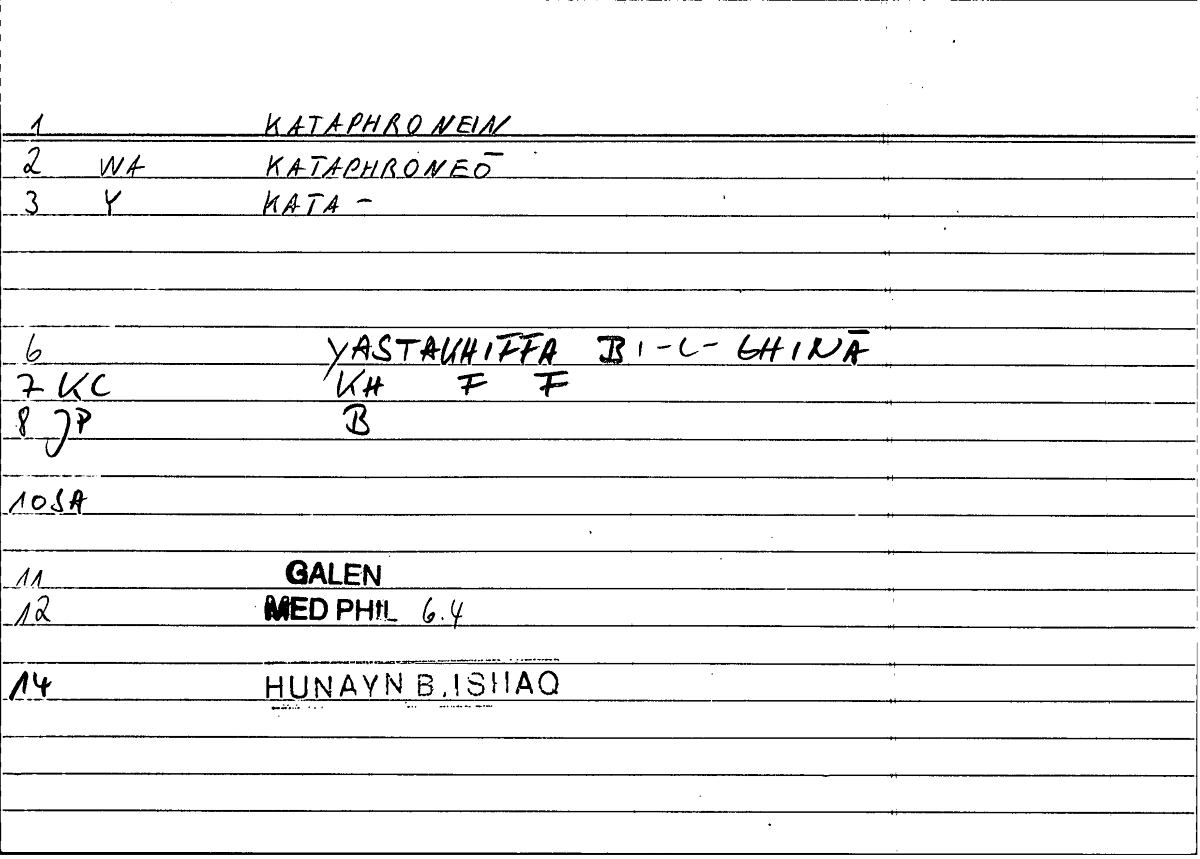 1 KATAPHRONEIN
2 WA KATAPHRONEŌ
3 Y KATA -
6 YASTAKHIFFA BI-L-GHINĀ
7 KC KH F F
8 JP B
10 SA
11 GALEN
12 MED PHIL 6.4
14 HUNAYN B. ISHAQ